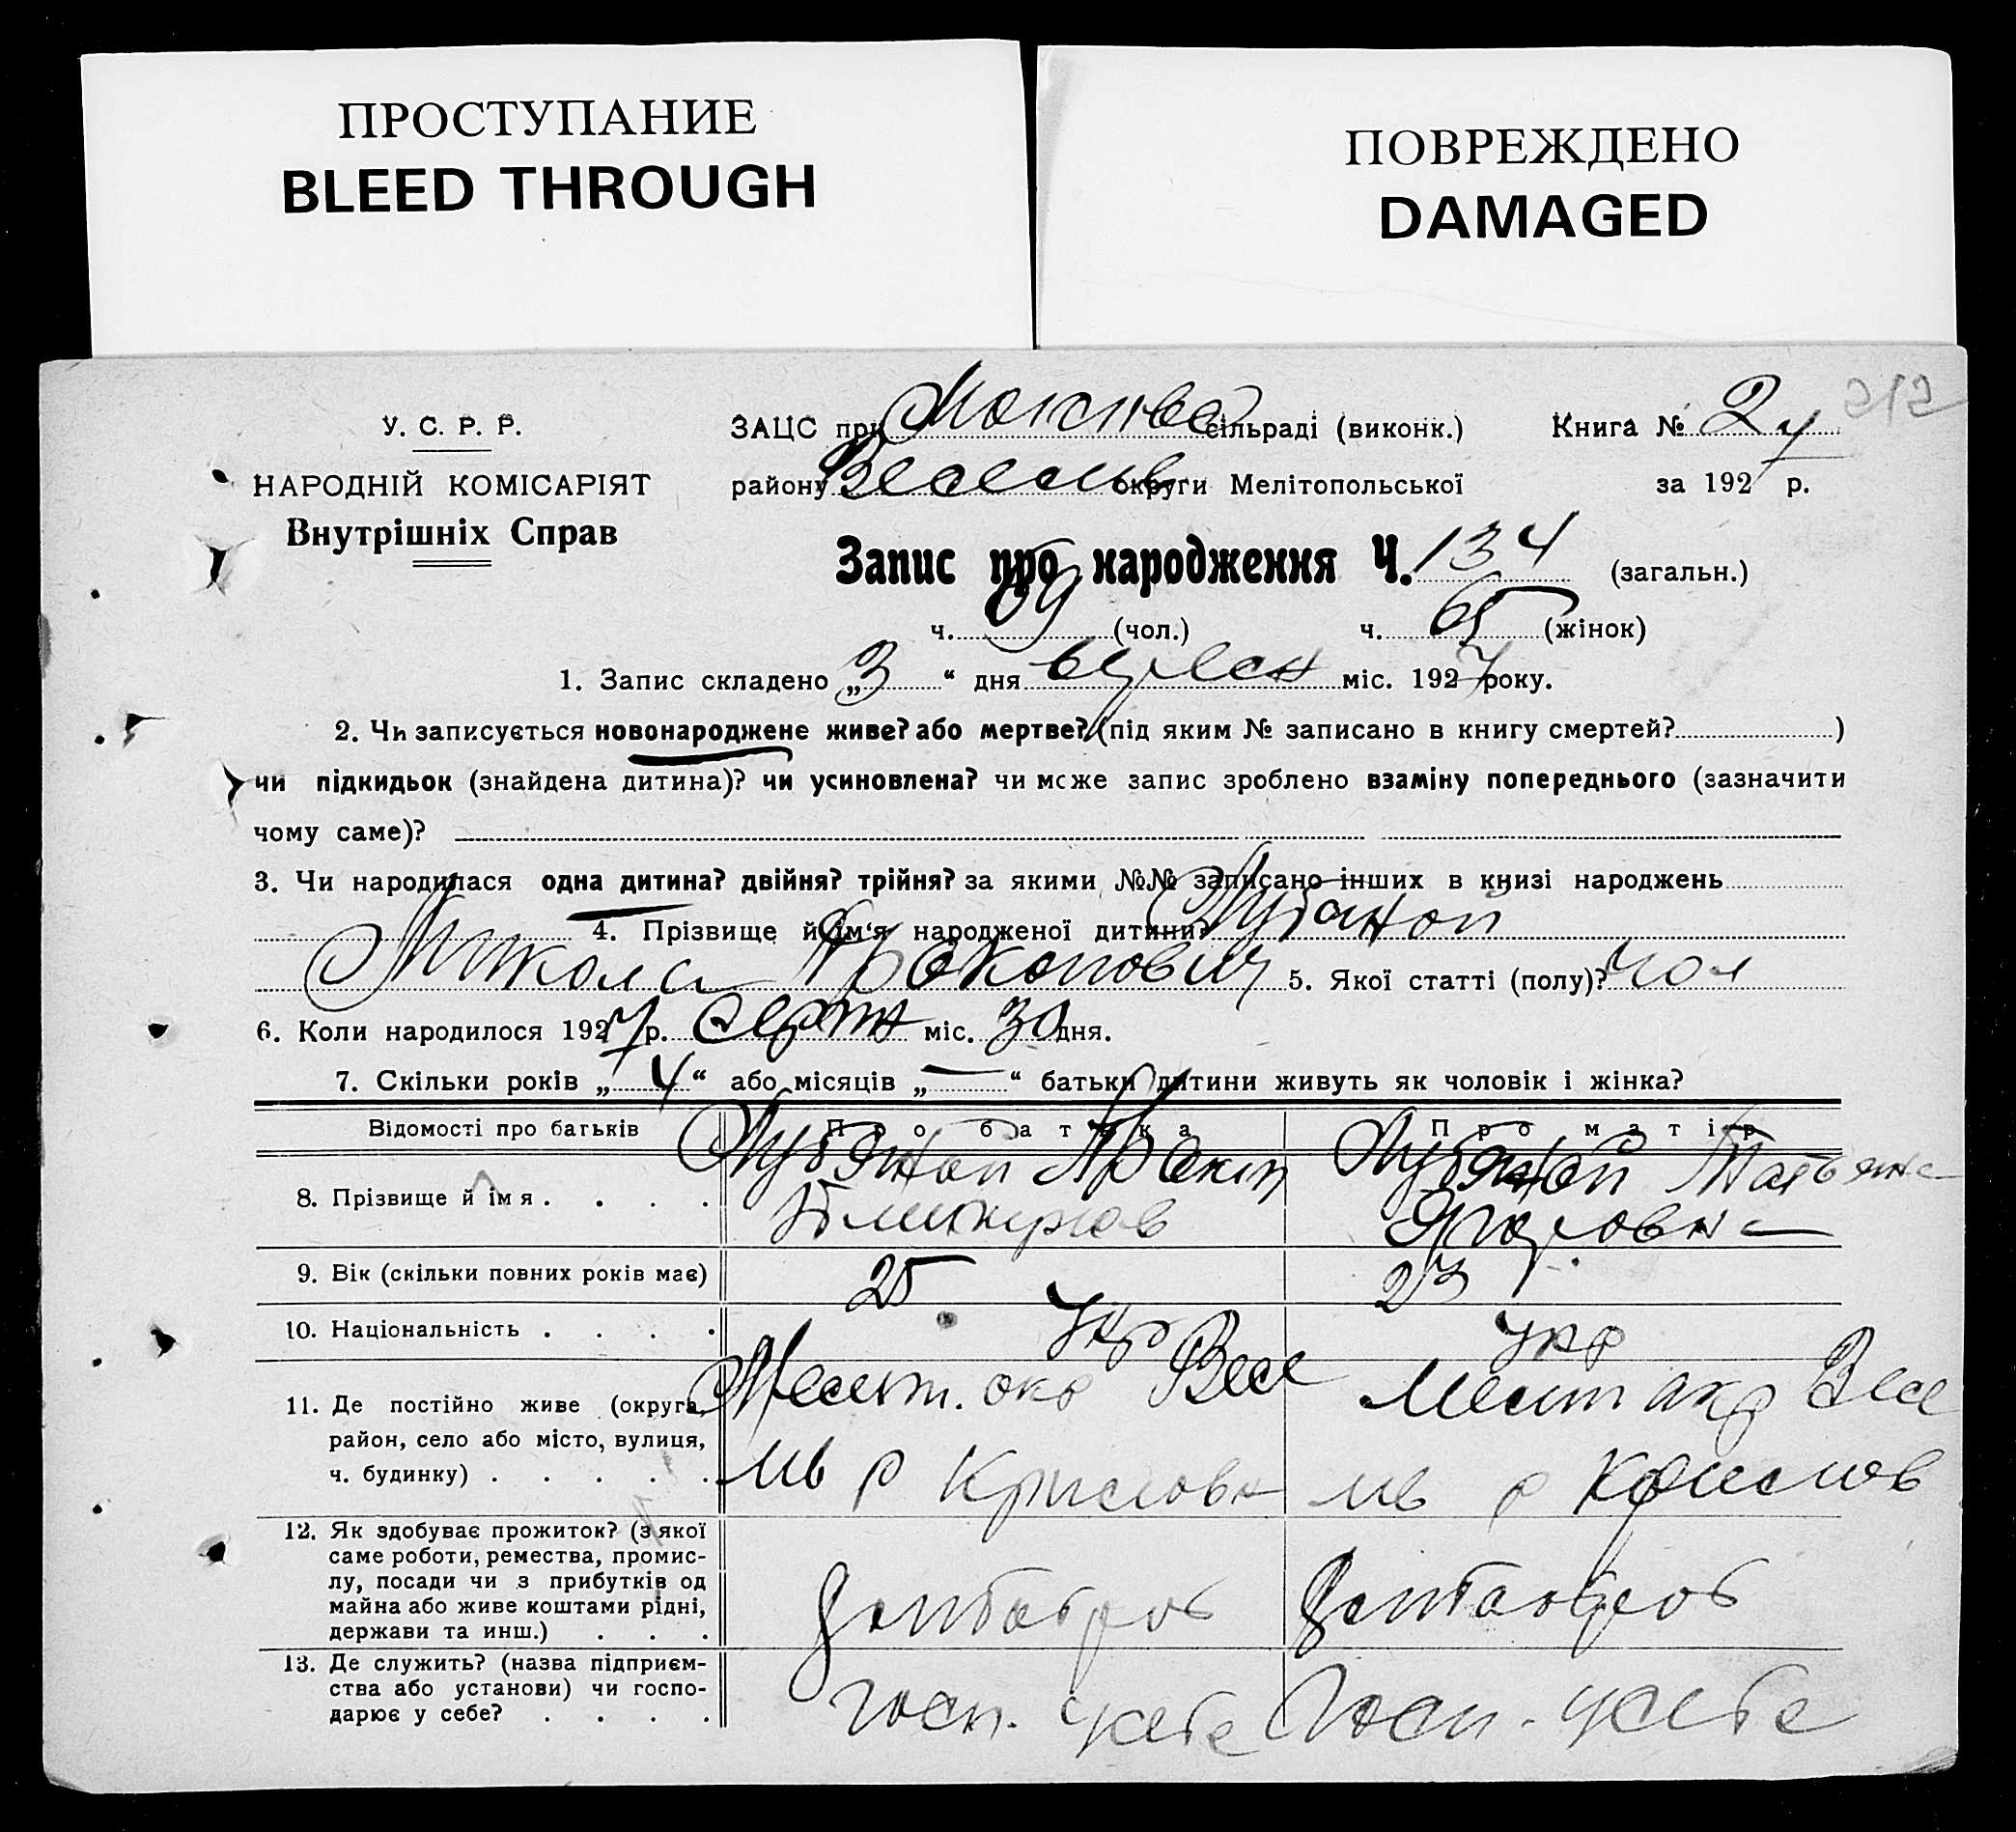 ПРОСТУПАНИЕ
BLEED THROUGH
ПОВРЕЖДЕНО
DAMAGED
212
У. С. Р. Р.
НАРОДНІЙ КОМІСАРІЯТ
Внутрішніх Справ
ЗАЦС при сільраді (виконк.) Книга № 2
району Весел округи Мелітопольської за 1927 р.
Запис про народження Ч. 134 (загальн.)
ч. 69 (чол.) ч. 65 (жінок)
1. Запис складено „3“ дня міс. 1927 року.
2. Чи записується новонароджене живе? або мертве? (під яким № записано в книгу смертей? )
чи підкидьок (знайдена дитина)? чи усиновлена? чи може запис зроблено взаміну попереднього (зазначити
чому саме)?
3. Чи народилася одна дитина? двійня? трійня? за якими №№ записано інших в книзі народжень
4. Прізвище й ім'я народженої дитини? Лубяной
Микола Прокопович 5. Якої статті (полу)? чол
6. Коли народилося 1927 р. Серпн міс. 30 дня.
7. Скільки років „4“ або місяців „—“ батьки дитини живуть як чоловік і жінка?
Відомості про батьків Про батька Про матір
8. Прізвище й імя. . . . Лубяной Прокіп Лубяной Татьяна
9. Вік (скільки повних років має) 25 23
10. Національність . . . . Укр Укр
11. Де постійно живе (округа, Меліт. окр Весе Меліт окр Весе
район, село або місто, вулиця,
ч. будинку) . . . . . лів р лів р
12. Як здобуває прожиток? (з якої
саме роботи, ремества, промис-
лу, посади чи з прибутків од
майна або живе коштами рідні,
держави та инш.) . . .
13. Де служить? (назва підприєм-
ства або установи) чи госпо-
дарює у себе? . . . . госп. усебе госп. усебе